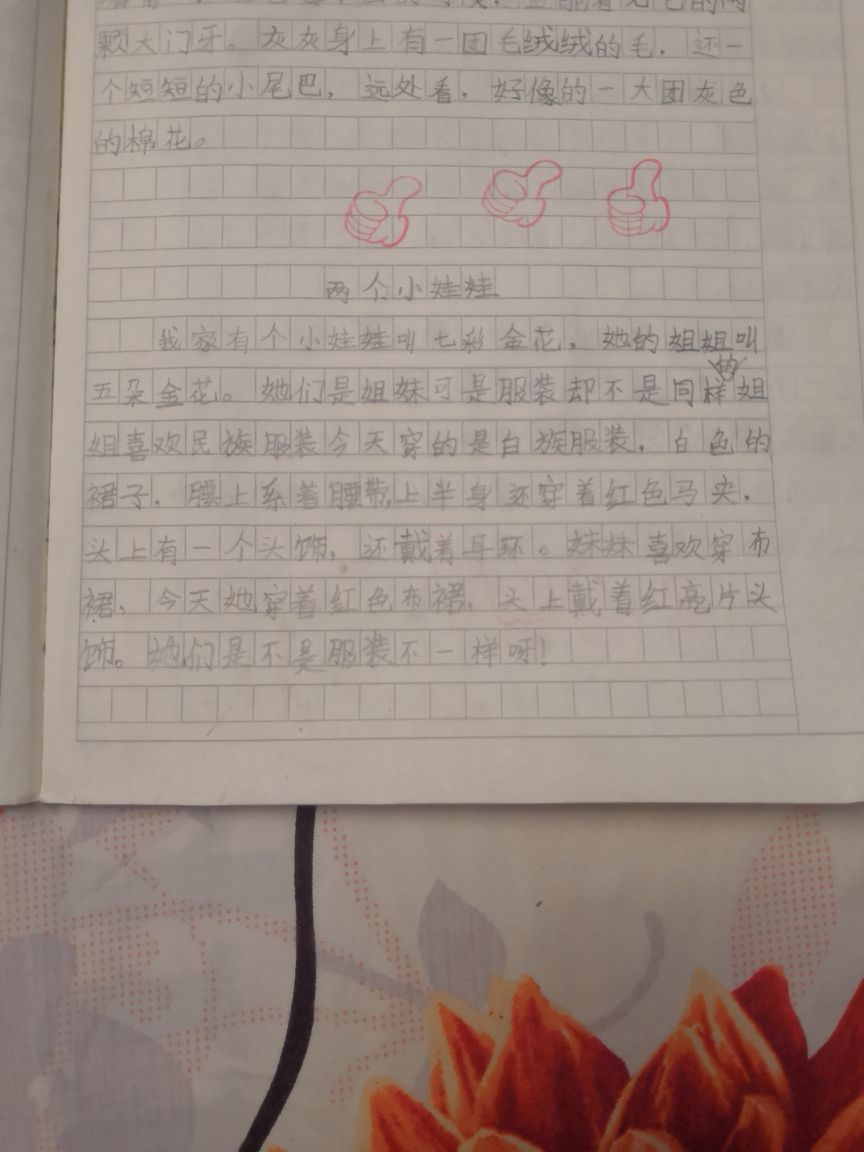 颗大门牙。灰灰身上有一团毛绒绒的毛，还一
个短短的小尾巴，远处看，好像的一大团灰色
的棉花。
两个小娃娃
我家有个小娃娃叫七彩金花，她的姐姐叫
五朵金花。她们是姐妹可是服装却不是同样的姐
姐喜欢民族服装今天穿的是白族服装，白色的
裙子，腰上系着腰带，上半身还穿着红色马夹，
头上有一个头饰，还戴着耳环。妹妹喜欢穿布
裙，今天她穿着红色布裙，头上戴着红亮片头
饰。她们是不是服装不一样呀！